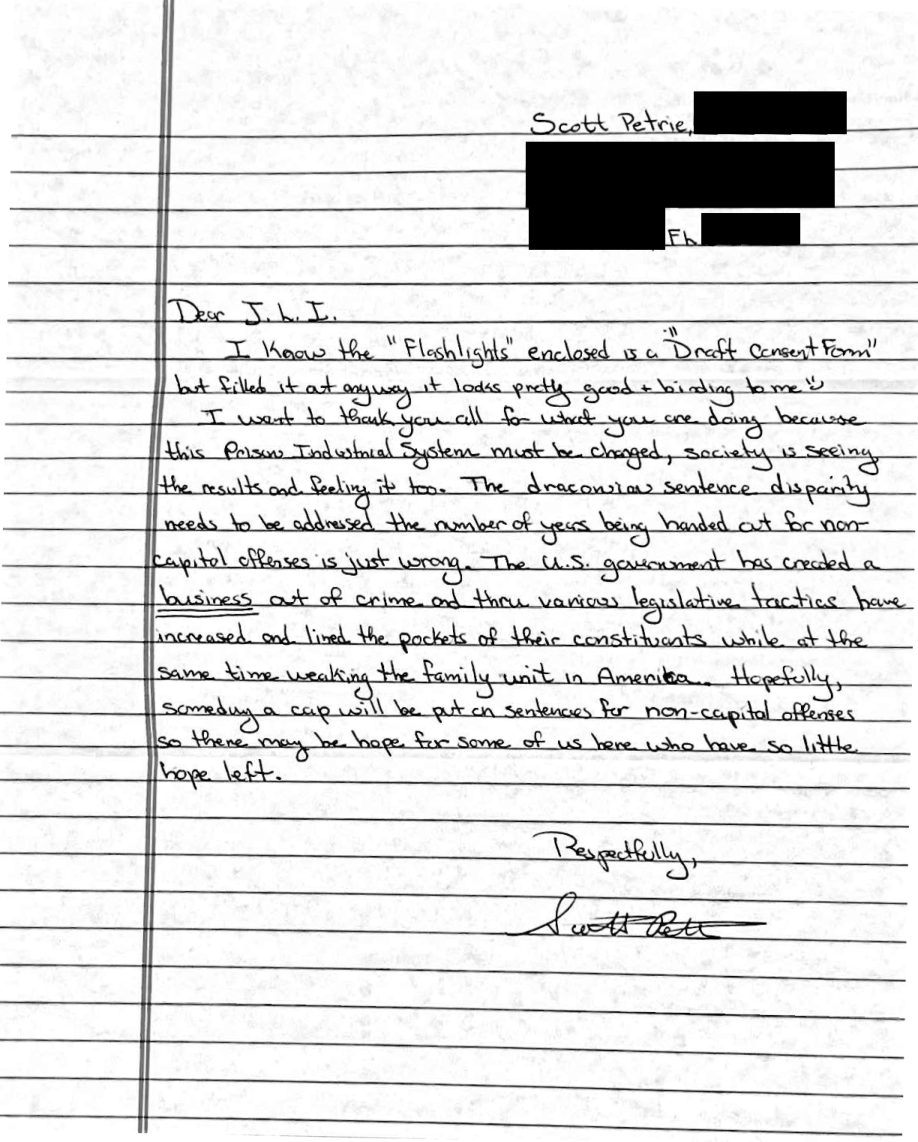 Scott Petrie,
FL
Dear J. L. I.
I Know the "Flashlights" enclosed is a "Draft Consent Form"
but filled it out anyway it looks pretty good + binding to me.
I want to thank you all for what you are doing because
this Prison Industrical System must be changed, society is seeing
the results and feeling it too. The draconian sentence disparity
needs to be addressed the number of years being handed out for non-
capitol offenses is just wrong. The U.S. government has created a
business out of crime and thru various legislative tactics have
increased and lined the pockets of their constituants while at the
same time weaking the family unit in America. Hopefully,
someday a cap will be put on sentences for non-capitol offenses
so there may be hope for some of us here who have so little
hope left.
Respectfully,
Scott Petr